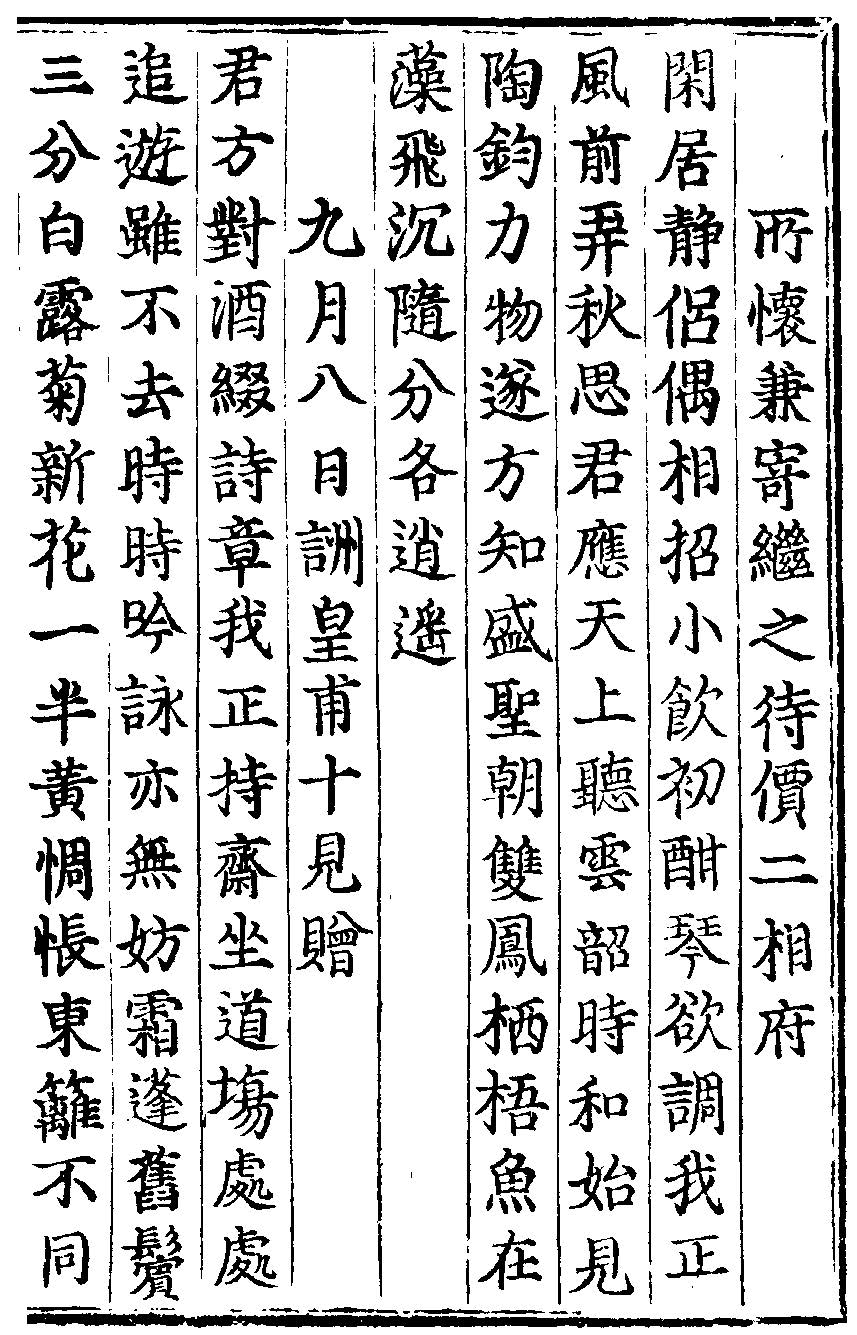 所懷兼寄繼之待價二相府
閑居静侣偶相招小飲初酣琴欲調我正
風前弄秋思君應天上聽雲韶時和始見
陶鈞力物遂方知盛聖朝雙鳳栖梧魚在
藻飛沉隨分各逍遥
九月八日詶皇甫十見贈
君方對酒綴詩章我正持齋坐道塲處處
追遊雖不去時時吟詠亦無妨霜蓬舊鬢
三分白露菊新花一半黃惆悵東籬不同